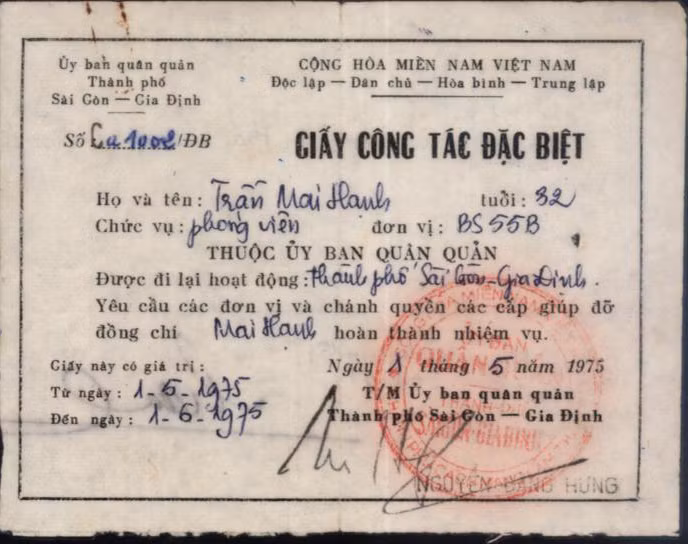 Ủy ban quân quản
Thành phố
Sài Gòn — Gia Định
CỘNG HÒA MIỀN NAM VIỆT NAM
Độc lập — Dân chủ — Hòa bình — Trung lập
Số 1002/ĐB
GIẤY CÔNG TÁC ĐẶC BIỆT
Họ và tên : Trần Mai Hạnh tuổi : 32
Chức vụ : phóng viên đơn vị : BS 55B
THUỘC ỦY BAN QUÂN QUẢN
Được đi lại hoạt động : thành phố Sài Gòn - Gia Định.
Yêu cầu các đơn vị và chánh quyền các cấp giúp đỡ
đồng chí Mai Hạnh hoàn thành nhiệm vụ.
Giấy này có giá trị :
Từ ngày : 1-5-1975
Đến ngày : 1-6-1975
Ngày 1 tháng 5 năm 1975
T/M Ủy ban quân quản
Thành phố Sài Gòn — Gia Định
NGUYỄN ĐĂNG HÙNG